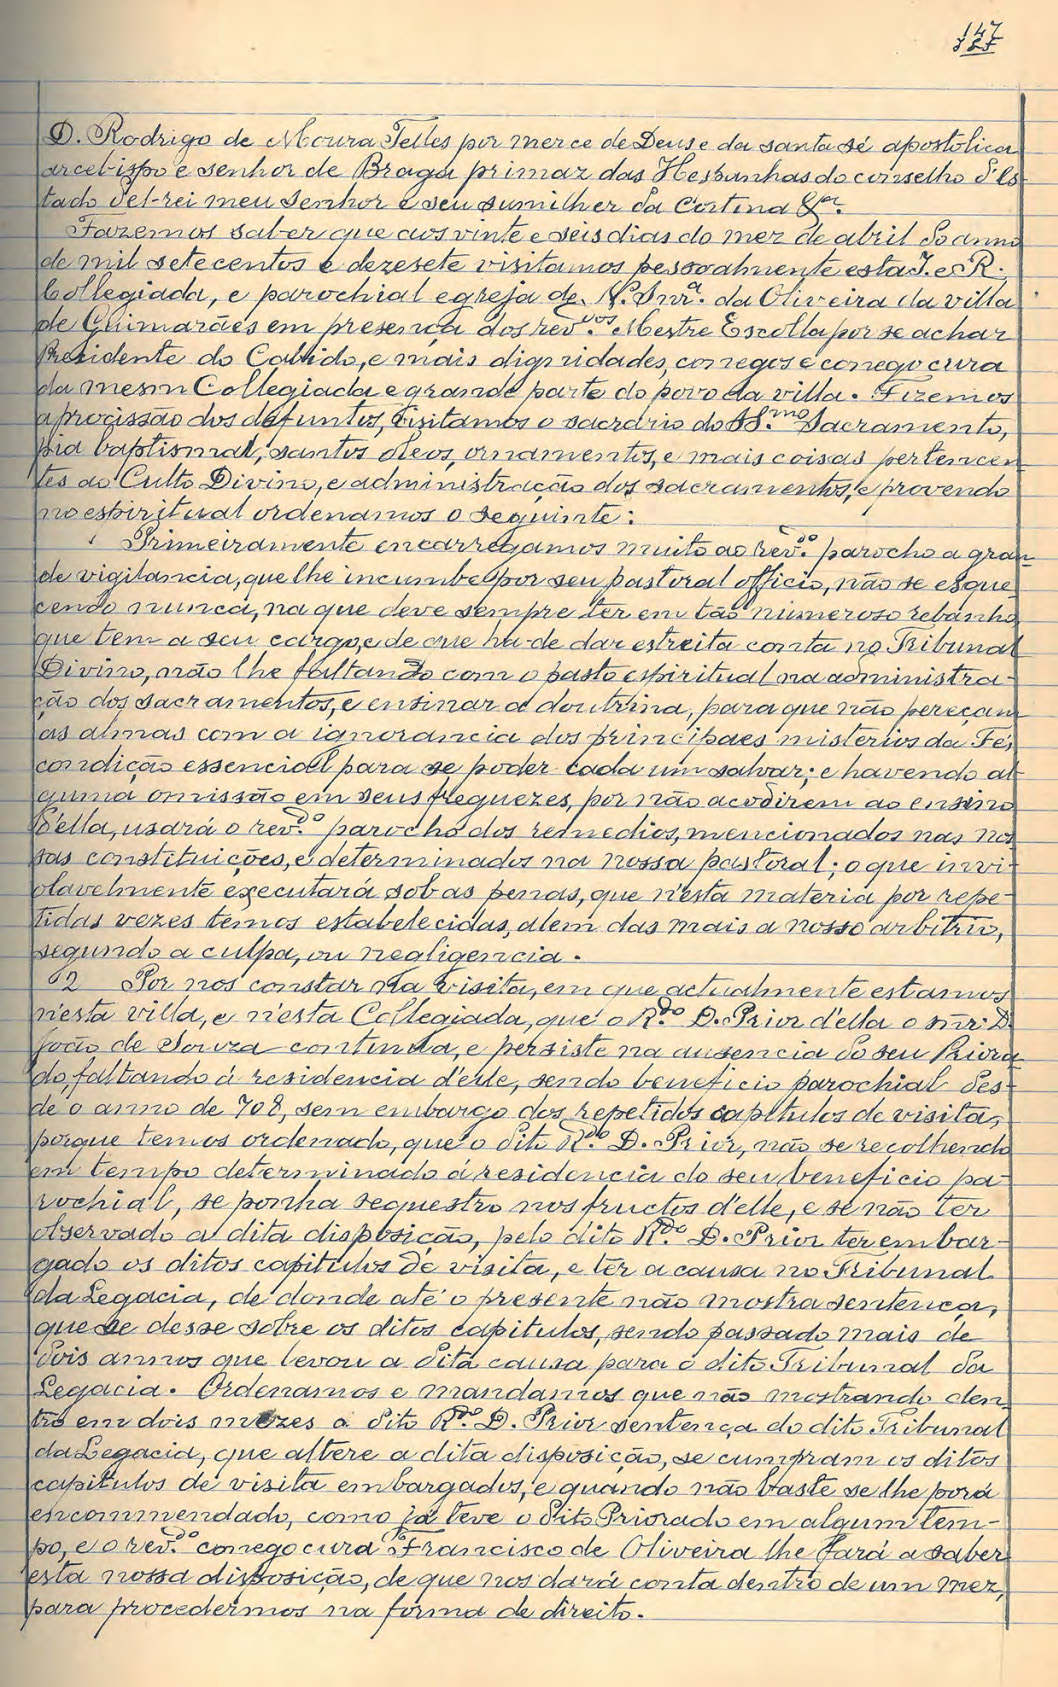 147
D. Rodrigo de Moura Telles por merce de Deus e da santa sé apostolica
arcebispo e senhor de Braga primaz das Hespanhas do conselho d'Es-
tado d'el-rei meu senhor e seu sumilher da Cortina &ª.
Fazemos saber que aos vinte e seis dias do mez de abril do anno
de mil setecentos e dezesete visitamos pessoalmente esta I. e R.
Collegiada, e parochial egreja de N. Snrª. da Oliveira da villa
de Guimarães em presença dos rev.dos Mestre Escolla por se achar
Prezidente do Cabido, e mais dignidades, conegos e conego cura
da mesm Collegiada e grande parte do povo da villa. Fizemos
a procissão dos defuntos, visitamos o sacrario do SS.mo Sacramento,
pia baptismal, santos oleos, ornamentos, e mais coisas pertencen-
tes ao Culto Divino, e administração dos sacramentos, e provendo
no espiritual ordenamos o seguinte:
Primeiramente encarregamos muito ao rev.do parocho a gran-
de vigilancia, que lhe incumbe por seu pastoral officio, não se esque-
cendo nunca, na que deve sempre ter em tão numeroso rebanho
que tem a seu cargo, e de que ha-de dar estreita conta no Tribunal
Divino, não lhe faltando com o pasto espiritual na administra-
ção dos sacramentos, e ensinar a doutrina, para que não pereçam
as almas com a ignorancia dos principaes misterios da Fé,
condição essencial para se poder cada um salvar; e havendo al-
guma omissão em seus freguezes, por não acodirem ao ensino
d'ella, usará o rev.do parocho dos remedios, mencionados nas nos-
sas constituições, e determinados na nossa pastoral; o que invi-
olavelmente executará sob as penas, que n'esta materia por repe-
tidas vezes temos estabelecidas, alem das mais a nosso arbitrio,
segundo a culpa, ou negligencia.
2 Por nos constar na visita, em que actualmente estamos
n'esta villa, e n'esta Collegiada, que o R.do D. Prior d'ella o snr. D.
João de Souza continua, e persiste na ausencia do seu Priora-
do, faltando á residencia d'elle, sendo beneficio parochial des-
de o anno de 708, sem embargo dos repetidos capitulos de visita,
porque temos ordenado, que o dito R.do D. Prior, não se recolhendo
em tempo determinado á residencia do seu beneficio pa-
rochial, se ponha sequestro nos fructos d'elle, e se não ter
observado a dita disposição, pelo dito R.do D. Prior ter embar-
gado os ditos capitulos de visita, e ter a causa no Tribunal
da Legacia, de donde até o presente não mostra sentença,
que se desse sobre os ditos capitulos, sendo passado mais de
dois annos que levou a dita causa para o dito Tribunal da
Legacia. Ordenamos e mandamos que não mostrando den-
tro em dois mezes o dito R.do D. Prior sentença do dito Tribunal
da Legacia, que altere a dita disposição, se cumpram os ditos
capitulos de visita embargados, e quando não baste se lhe porá
encommendado, como já teve o dito Priorado em algum tem-
po, e o rev.do conego cura Fr.co Francisco de Oliveira lhe fará a saber
esta nossa disposição, de que nos dará conta dentro de um mez,
para procedermos na forma de direito.